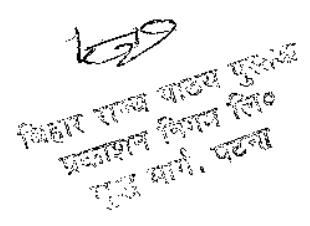 बिहार राज्य पाठ्य पुस्तक
प्रकाशन निगम लि०
बुद्ध मार्ग, पटना